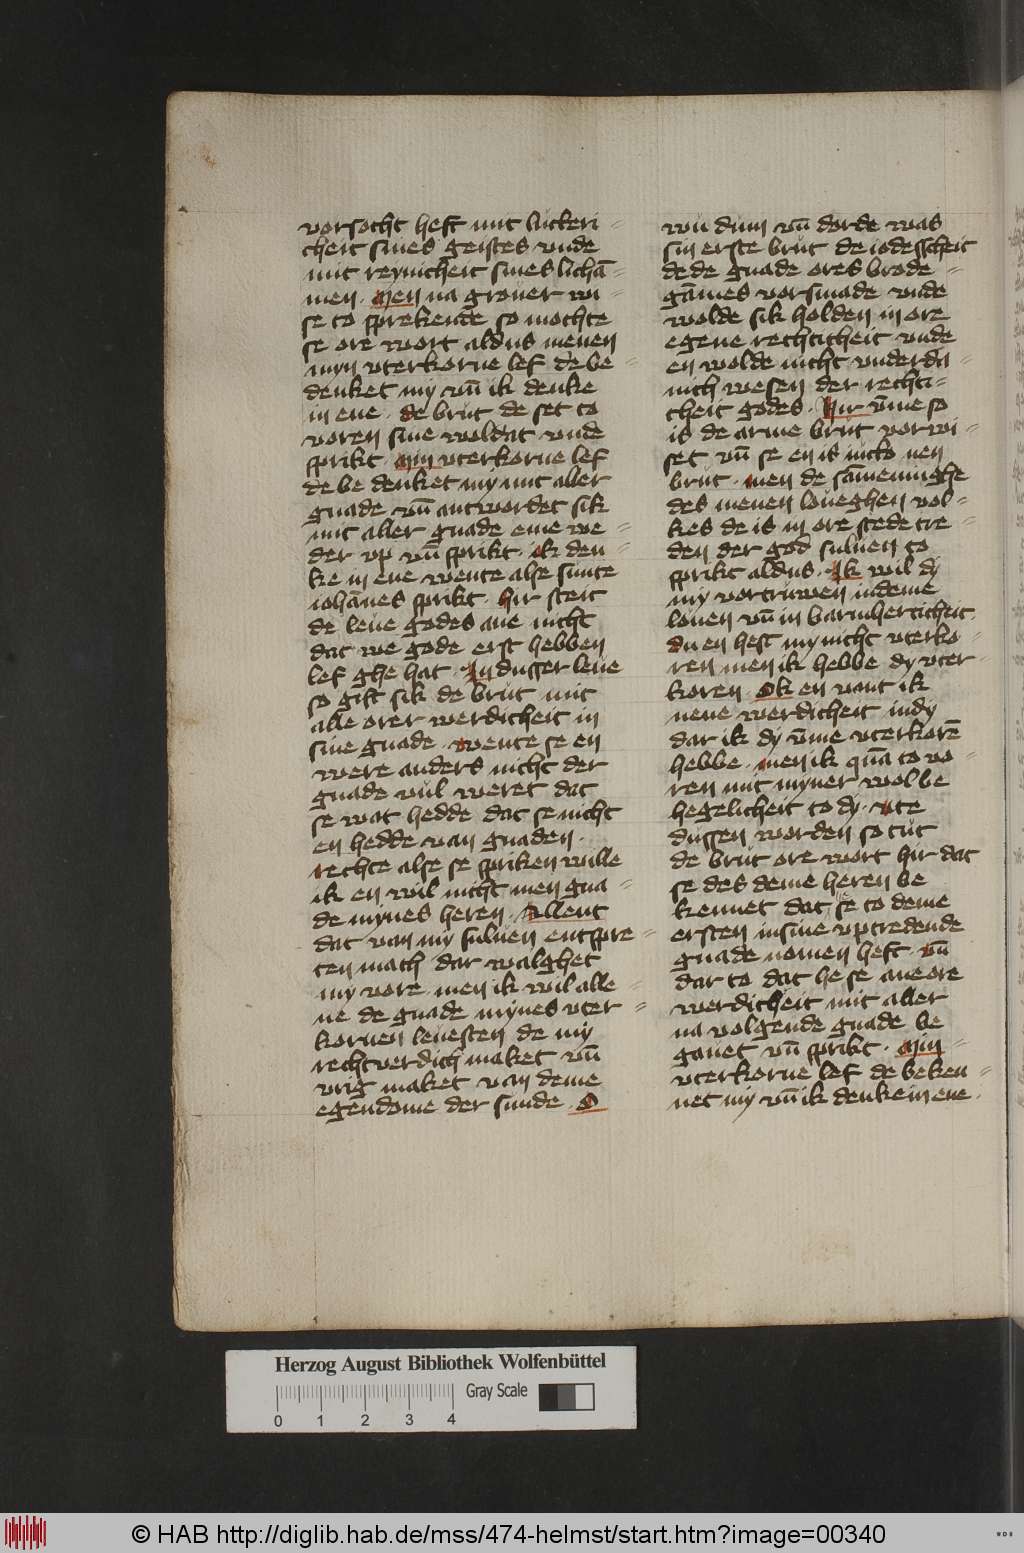 vorsocht heft mit luckeri=
cheit sines geistes vnde
mit reynicheit sines lichā=
men. Men na grouer wi=
se to sprekende so mochte
se ore wort aldus menen
myn vterkorne lef de be=
denket my vn̄ ik denke
in eme. de brut de set to
voren sine woldat vnde
sprikt. Min vterkorne lef
de be denket my mit aller
gnade vn̄ antwordet sik
mit aller gnade eme we=
der vp vn̄ sprikt. ik den=
ke in eme wente alse sunte
iohānes sprikt. Hir steit
de leue godes ane nicht
dat we gode erst hebben
lef ghe hat. In dusser leue
so gift sik de brut mit
alle orer werdicheit in
sine gnade. wente se en
were anders nicht der
gnade vul weret dat
se wat hedde dat se nicht
en hedde van gnaden.
rechte alse se spriken wille
ik en wil nicht men gna=
de mynes heren. Allent
dat van my suluen entspre=
ten mach dar walghet
my vore. men ik wil alle=
ne de gnade mynes vter=
kornen leuesten de my
rechtverdich maket vn̄
vrig maket van deme
egendome der sunde. O
wu dum vn̄ dorde was
sin erste brut de iodesscheit
de de gnade ores brode=
gāmes vorsmade vnde
wolde sik holden in ore
egene rechticheit vnde
en wolde nicht vnderda=
nich wesen der rechti=
cheit godes. Hir v̄me so
is de arme brut vorwi=
set vn̄ se en is nicht nen
brut. men de sāmeninghe
des menen loueghen vol=
kes de is in ore stede tre=
den der god suluen to
sprikt aldus. Ik wil dy
my vortruwen in deme
louen vn̄ in barmherticheit
du en hest my nicht vterko=
ren men ik hebbe dy vter=
koren. Ok en vant ik
nene werdicheit in dy
dar ik dy v̄me vterkorē
hebbe. men ik quā to vo=
ren mit myner wol be
hegelicheit to dy. vte
dussen worden so tut
de brut ore wort hir dat
se des deme heren be
kennet dat se to deme
ersten in sine vptredende
gnade nomen heft. vn̄
dar to dat he se ane ore
werdicheit mit aller
na volgende gnade be
gauet vn̄ sprikt. Min=
vterkorne lef de beken=
net my vn̄ ik denke in eme.
Herzog August Bibliothek Wolfenbüttel
Gray Scale
0 1 2 3 4
© HAB http://diglib.hab.de/mss/474-helmst/start.htm?image=00340